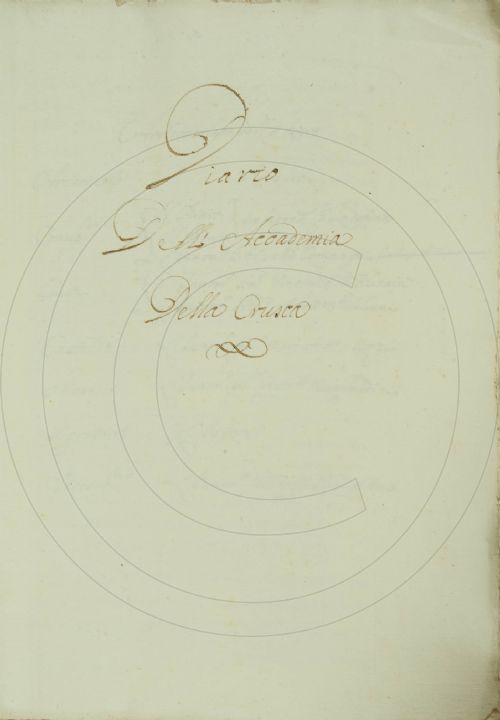 Diario
Dell' Accademia
Della Crusca